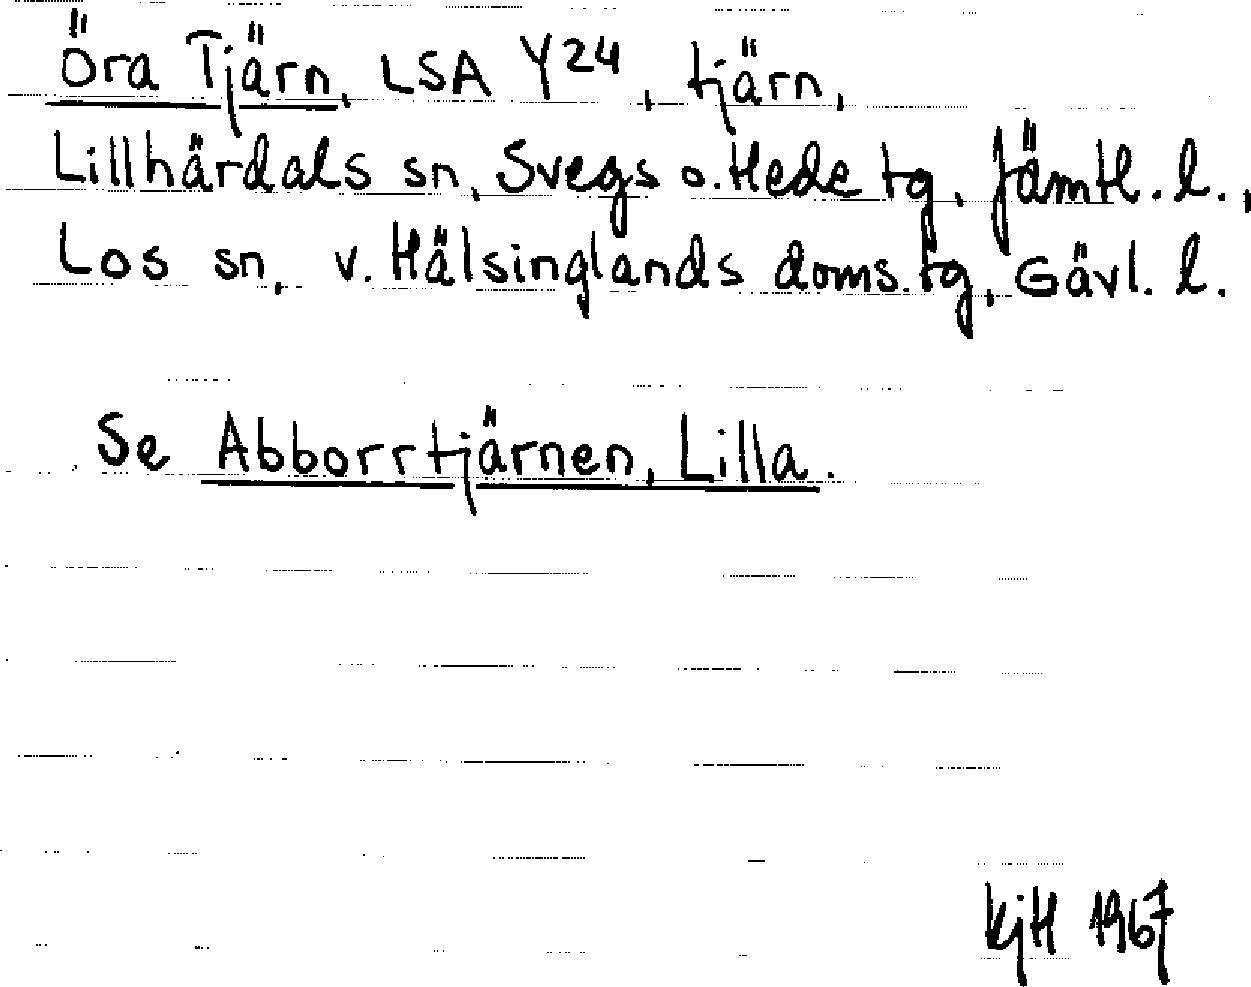 Öra Tjärn, LSA Y24, tjärn,
Lillhärdals sn, Svegs o. Hede tg, Jämtl. l.,
Los sn, v. Hälsinglands doms. tg, Gävl. l.
Se Abborrtjärnen, Lilla.
KjH 1967